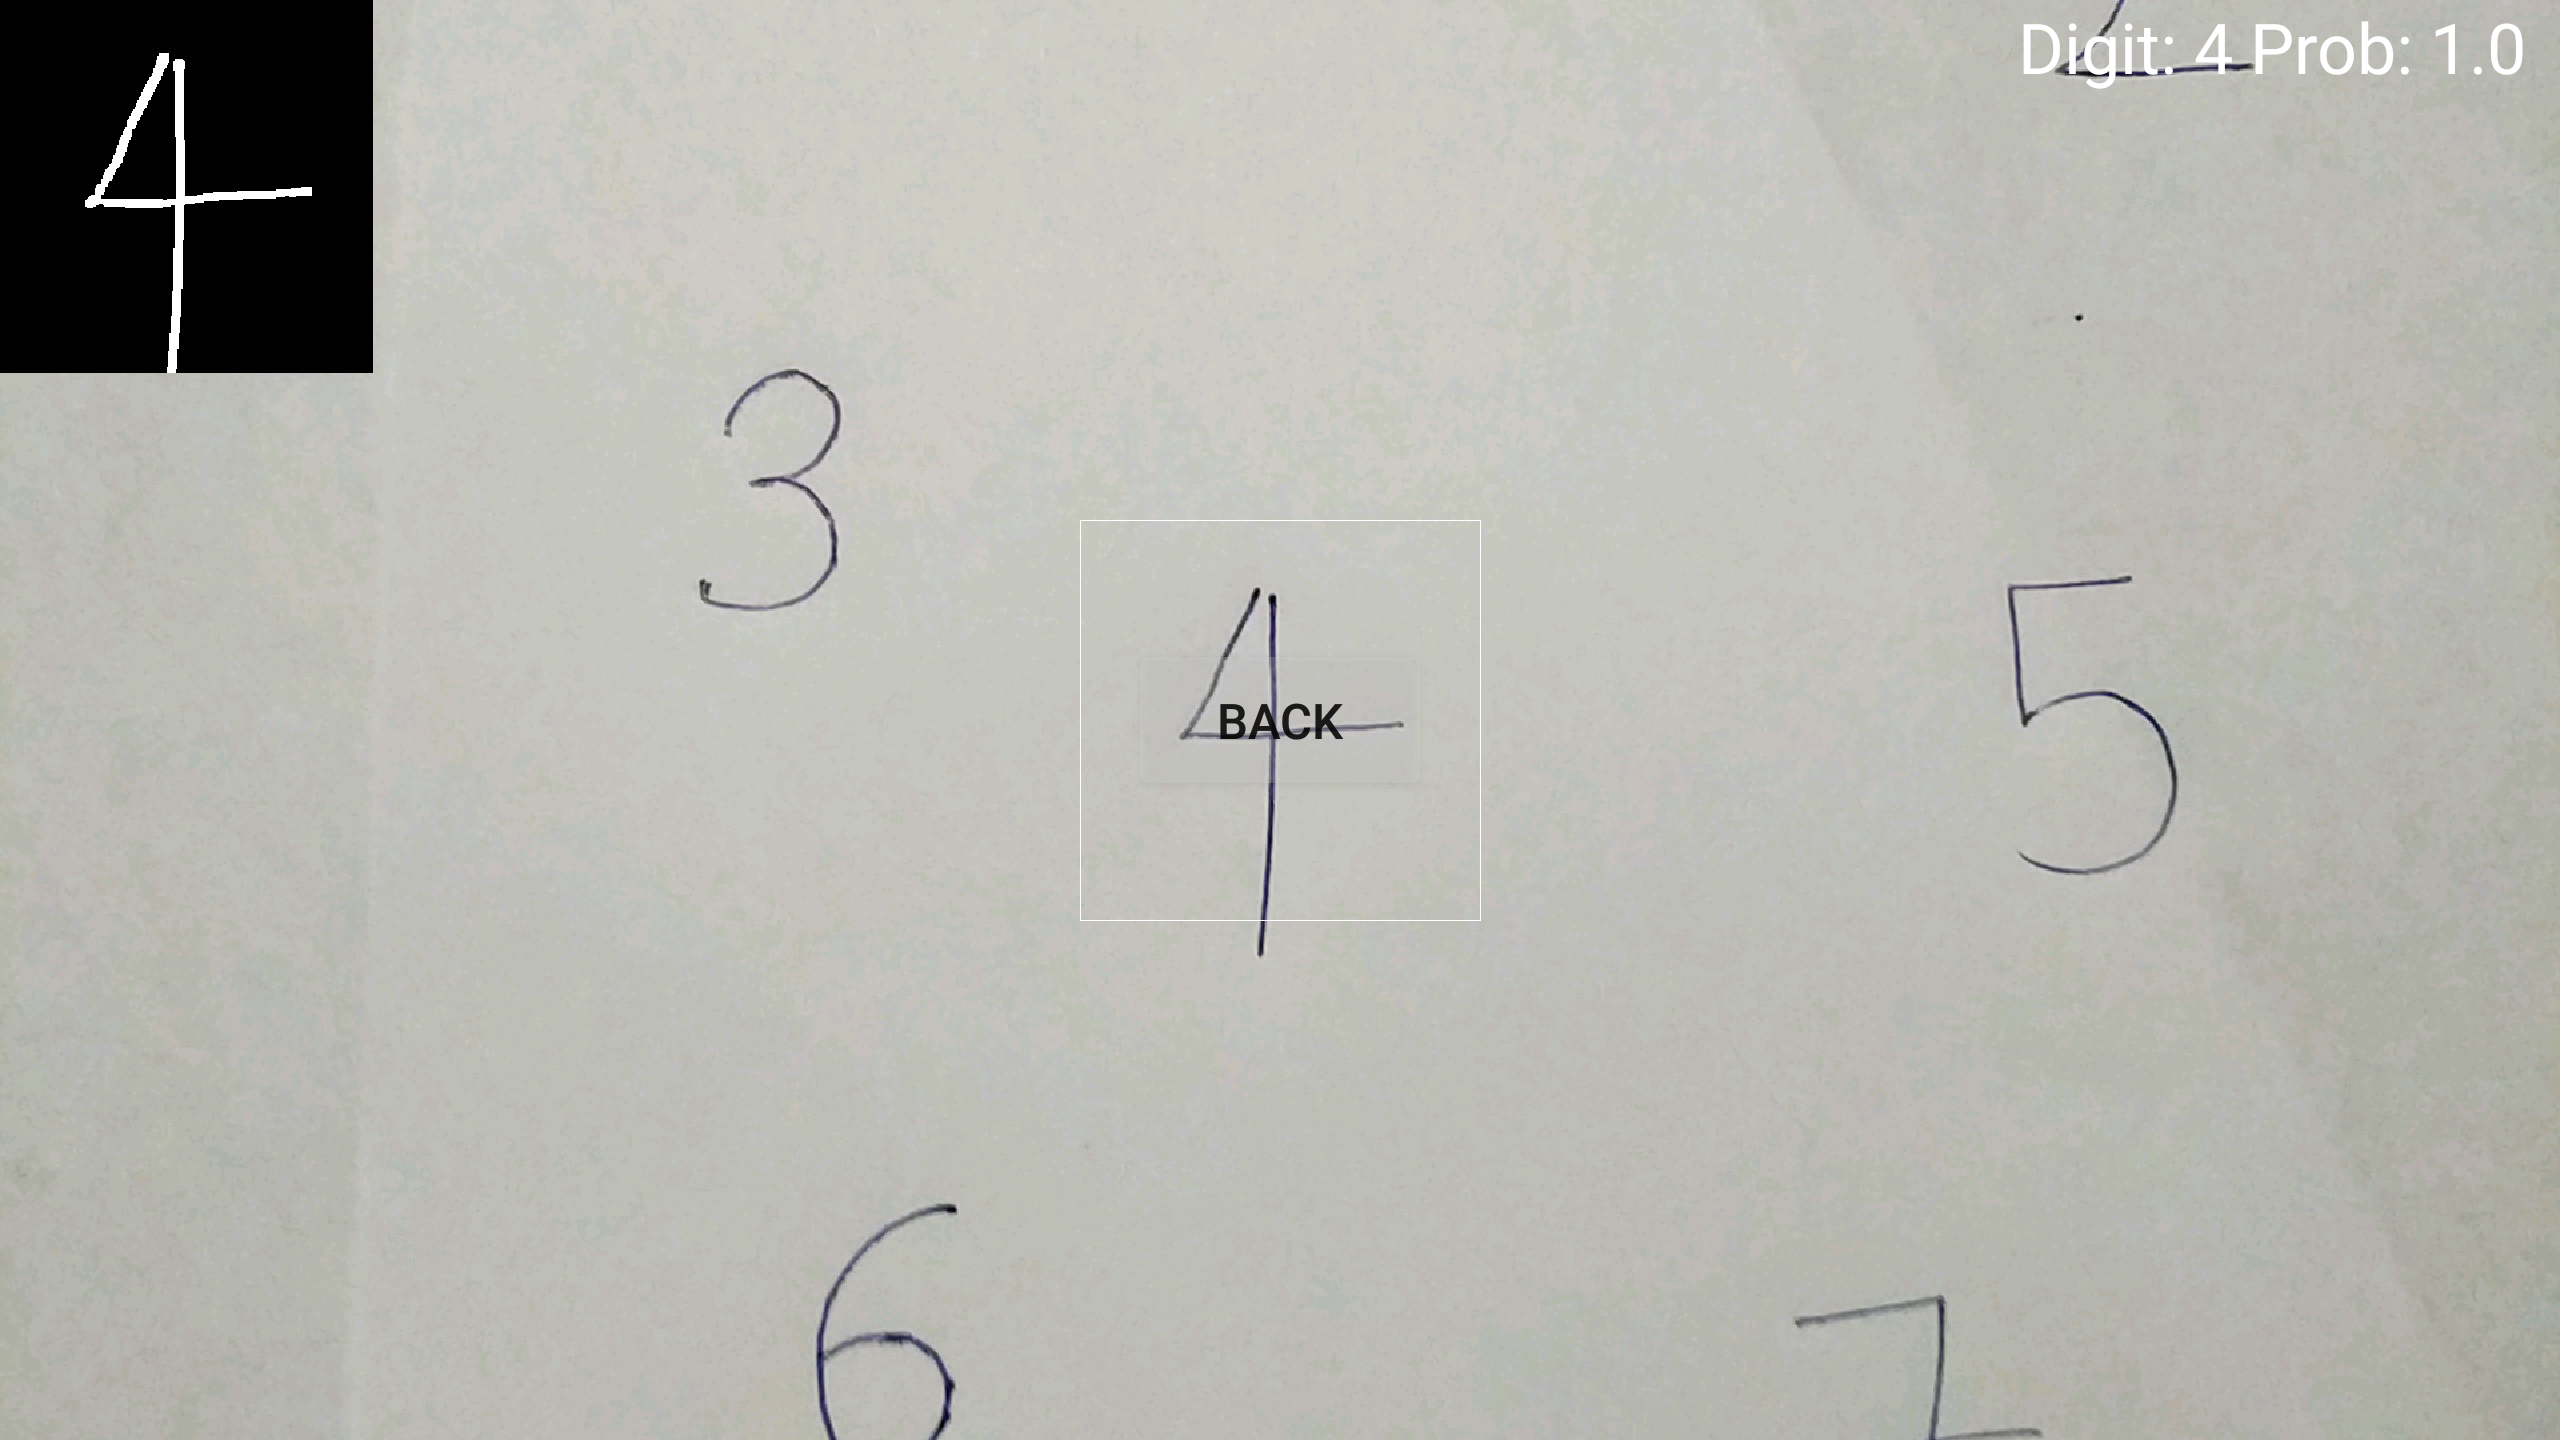 4
Digit: 4 Prob: 1.0
3
4
BACK
5
6
7